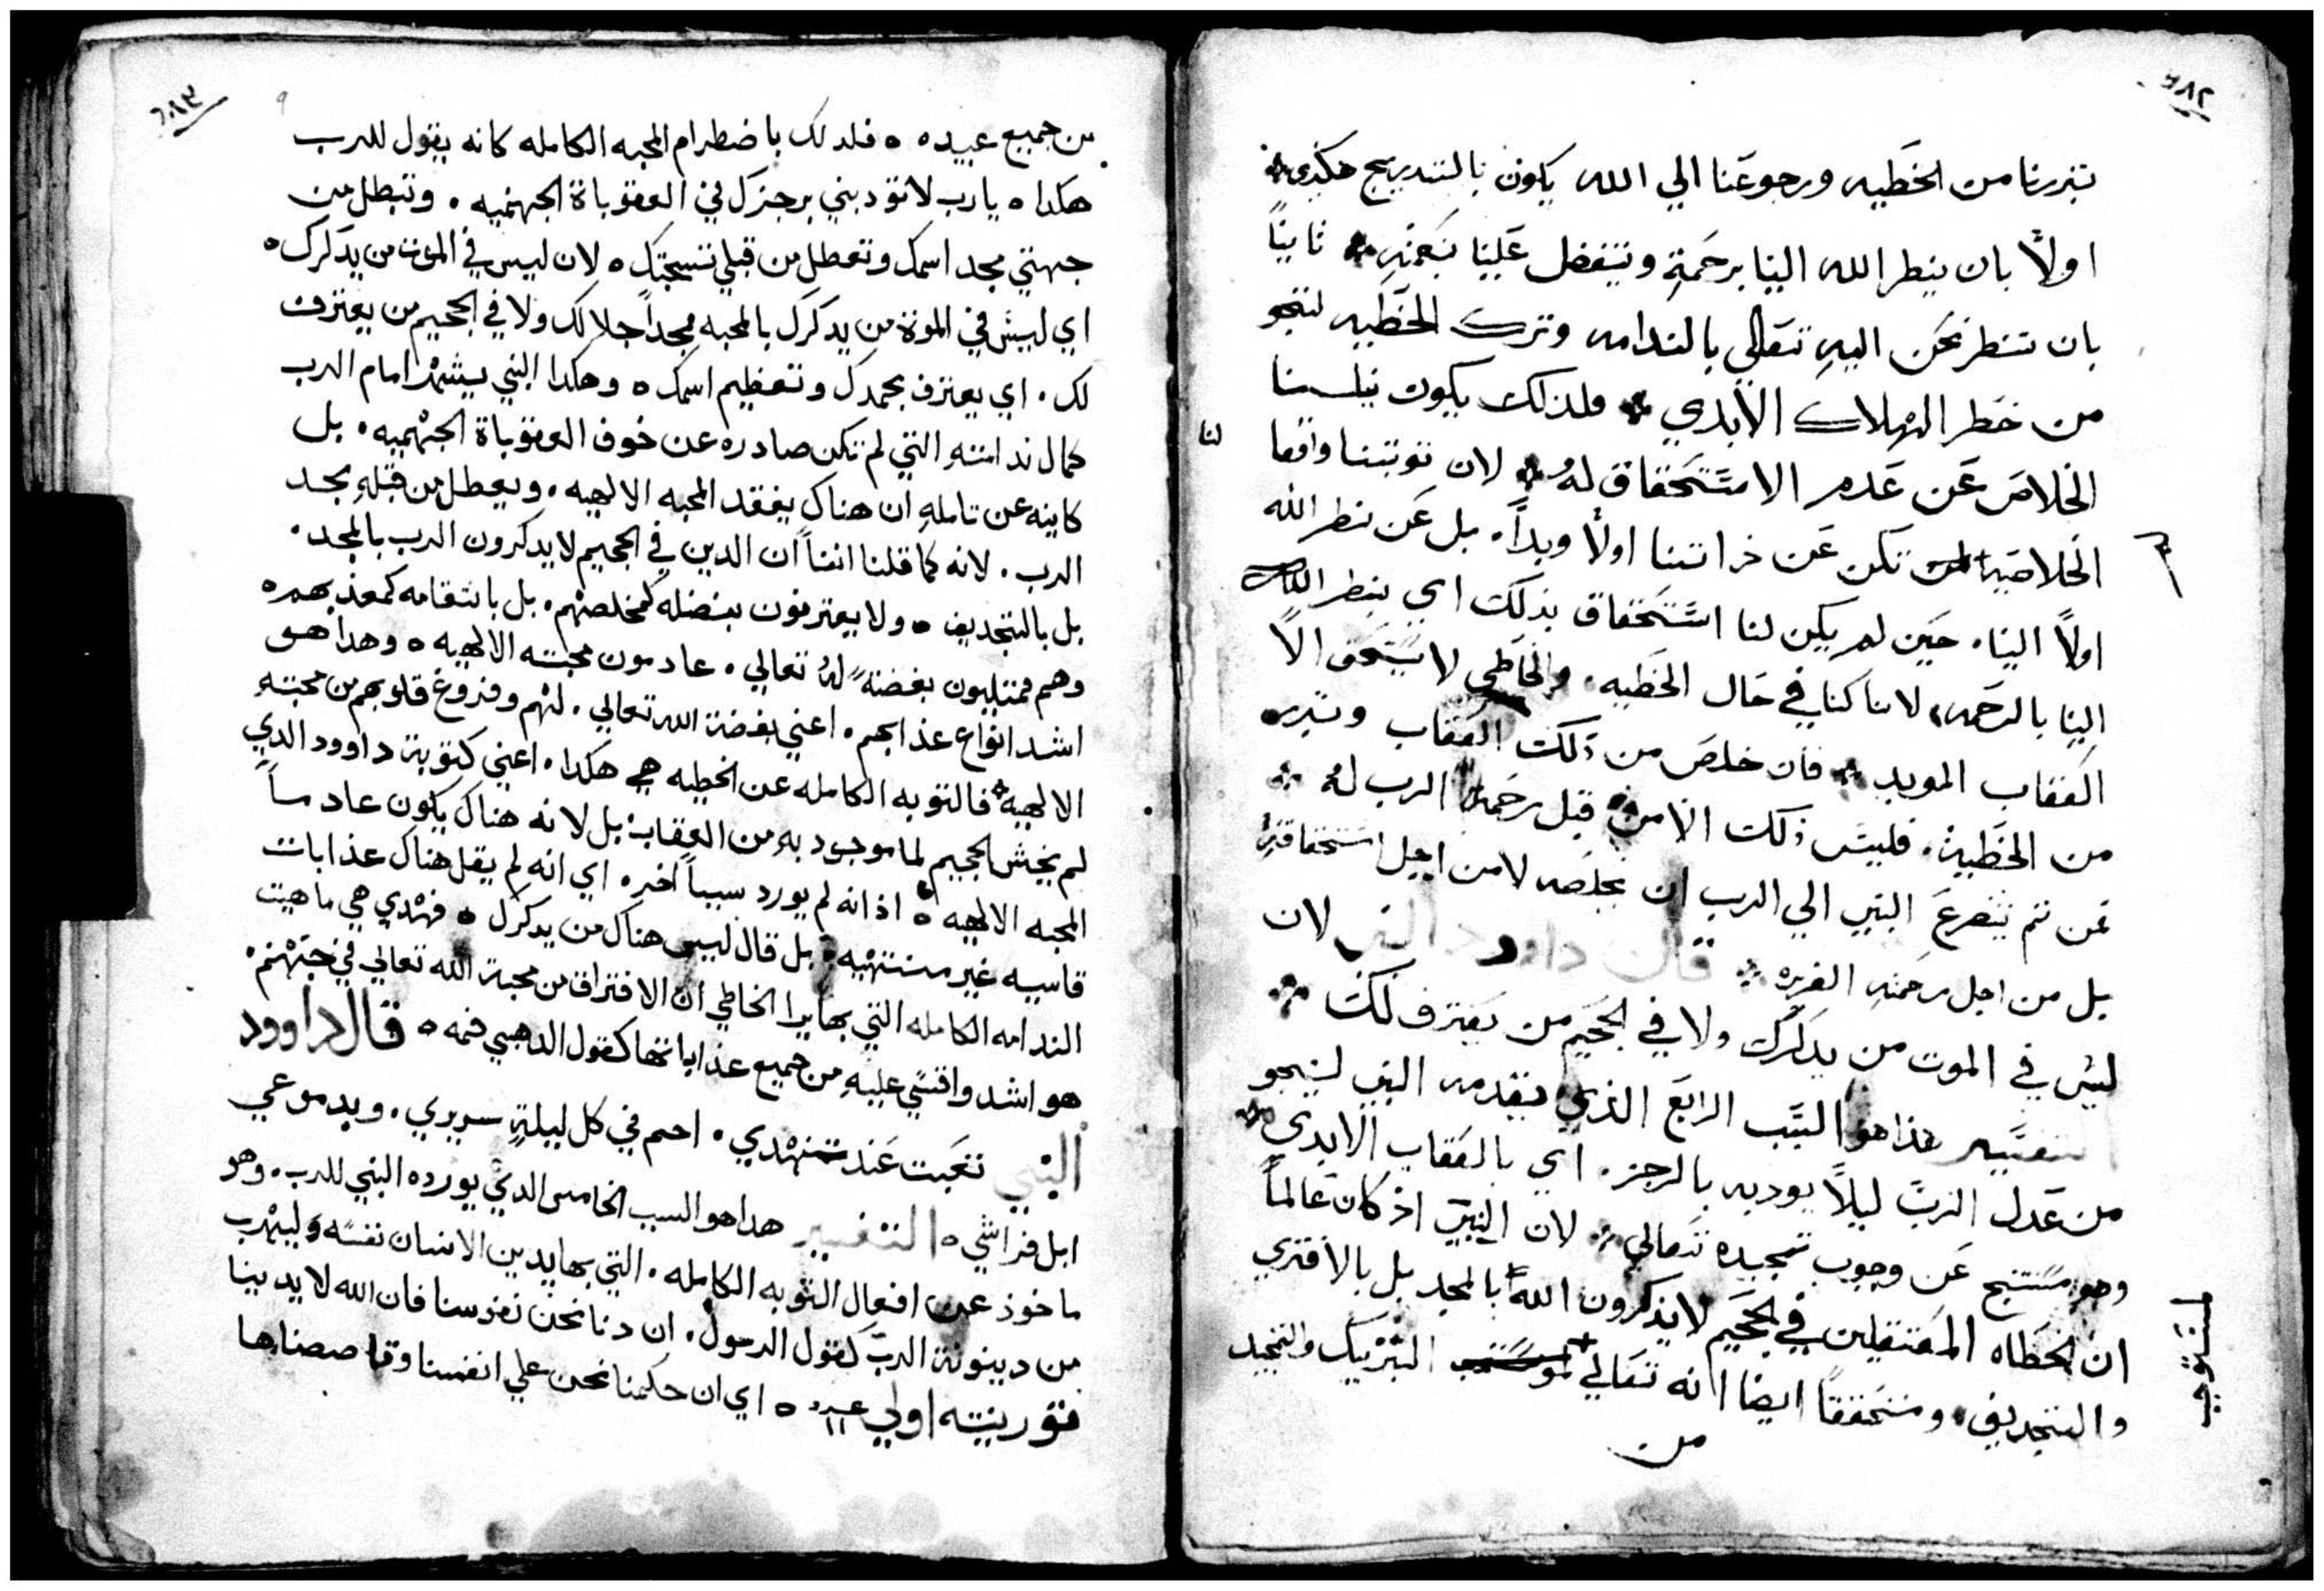 ٢٨٢
تبررنا من الخَطيه ورجوعَنا الي الله يكون بالتدريج هكذي
اولاً بان ينطر الله الينا برحَمةٍ ويتفضل عَلينا بنعَمتهِ ثانياً
بان ننطر نحَن اليهِ تتعَالي بالندامه وترك الخَطيه لننجو
من خَطر الهلاك الأبدي فلذلك يكون نيلسنا
الخلاصَ عَن عَدم الاستَحَقاق لهُ لان توبتنا واقعا لنا
الخلاصَيه لم تكن عَن ذراتنا اولاً وبداً. بل عَن نطر الله
اولاً الينا. حَين لم يكن لنا استَحَقاق بذلك اي بنطر الله
الينا بالرحَمه، لاننا كنا في حَال الخَطيه. والخَاطي لا يستَحَق الاً
العَقاب الموبد فان خلصَ من ذلك العَقاب وتبرره
من الخَطيئة. فليسَ ذلك الا من قبل رحَمة الرب لهُ
فمن تم يتضرعَ النبي الي الرب ان يخلصَه لا من اجل استحَقاقهِ
بل من اجل رحَمتهِ الغزيره قال داوود النبي لان
ليسَ في الموت من يدكرك ولا في الجحَيم من يعَترف لك
التفسَير هذا هو السَبَب الرابعَ الذي يقدمه النبي لينجو
من عَدل الربَ ليلاً يوديه بالرجز. اي بالعَقاب الابدي
وهو مسَتنتج عَن وجوب تمجيده تعَالي لان النبيَ اذ كان عَالماً
ان الخَطاه المعَتقلين في الجحَيم لا يذكرون اللهَ بالمجد بل بالافتري
والتجديف. ومتحَققاً ايضا انه تعَالي التبَريك والتمجيد
المستوجب
من
٢٨٣
٩
من جميع عبيده ٥ فلدلك باضطرام المحبه الكامله كانه يقول للرب
هكدا ٥ يارب لا تودبني برجزك في العقوباة الجهنميه. وتبطل من
جهتي مجد اسمك وتعطل من قبلي تسبحتك ٥ لان ليس في الموت من يدكرك ٥
اي ليسَ في الموة من يدكرك بالمحبه ممجداً جلالك ولا في الجحيم من يعترف
لك. اي يعترف بحمدك وتعظيم اسمك ٥ وهكدا النبي يشهر امام الرب
كمال ندامته التي لم تكن صادره عن خوف العقوباة الجهْنميه. بل
كاينه عن تاملهِ ان هناك يفقد المحبه الالهيه. ويعطل من قبلهِ مجد
الرب. لانه كما قلنا انناً ان الدين في الجحيم لا يدكرون الرب بالمجد.
بل بالتجديف ٥ ولا يعترفون بفضله كمخلصهْم. بل بانتقامه كمعذبهم ٥
وهم ممتليون بغضةً لهُ تعالي. عادمون محبته الالهيه ٥ وهدا هو
اشد انواع عذابهم. اعني بغضة الله تعالي. لهْم وفروغ قلوبهم من محبتهِ
الالهيه فالتوبه الكامله عن الخطيه هي هكدا. اعني كتوبة داوود الدي
لم يخشَ الجحيم لما موجود بهِ من العقاب بل لانه هناك يكون عادماً
المحبه الالهيه ٥ اذ انه لم يورد سبباً اخر. اي انه لم يقل هناك عذابات
قاسيه غير منتهْيه. بل قال ليس هناك من يدكرك ٥ فهْدي هي ماهيت
الندامه الكامله التي بها يرا الخاطي ان الافتراق من محبة الله تعالي في جهْنم.
هو اشد واقسَي عليهِ من جميع عذاباتها كقول الدهبي فمه ٥ قال داوود
النبي تعَبت عَند تنهْدي. احم في كل ليلةٍ سريري. وبدموعي
ابل فراشي ٥ التفسير هدا هو السبب الخامس الدي يورده النبي للرب. وهو
ماخوذ عن افعال التوبه الكامله. التي بها يدين الانسان نفسَه وليهْرب
من دينونة الربَ كقول الرسول. ان دنا نحن نفوسنا فان الله لا يديننا
قورنيته اولي ١١ ٥ اي ان حكمنا نحن علي انفسنا وقاصصناها